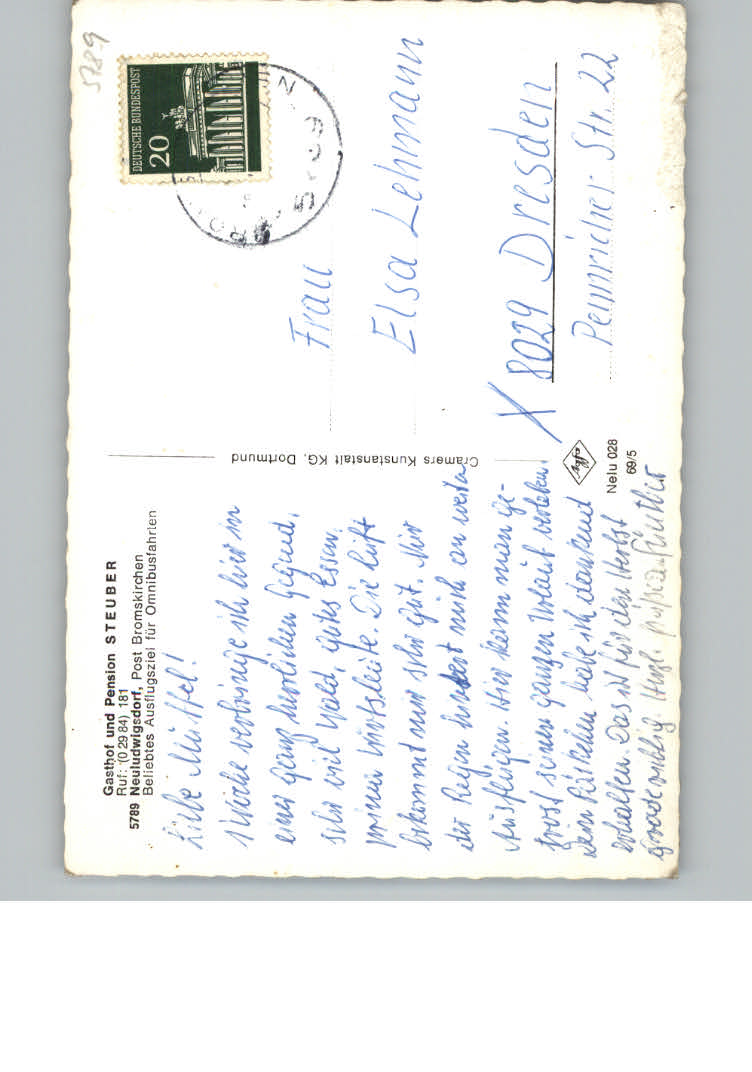 Gasthof und Pension STEUBER
Ruf: (0 29 84) 181
5789 Neuludwigsdorf, Post Bromskirchen
Beliebtes Ausflugsziel für Omnibusfahrten
Liebe
1 Woche verbringe ich hier in
einer ganz herrlichen Gegend,
sehr viel Wald, gutes Essen,
prima Wirtsleute. Die Luft
bekommt mir sehr gut. Nur
der Regen hindert mich an weiten
Ausflügen. Hier kann man ge-
trost seinen ganzen Urlaub verleben.
Dein Päckchen habe ich dankend
erhalten. Das ist für den Herbst
gerade richtig. Herzl. Günther
Cramers Kunstanstalt KG, Dortmund
Nelu 028
69/5
5789
DEUTSCHE BUNDESPOST
20
5789
Frau
Elsa Lehmann
X 8029 Dresden
Pennricher Str. 22